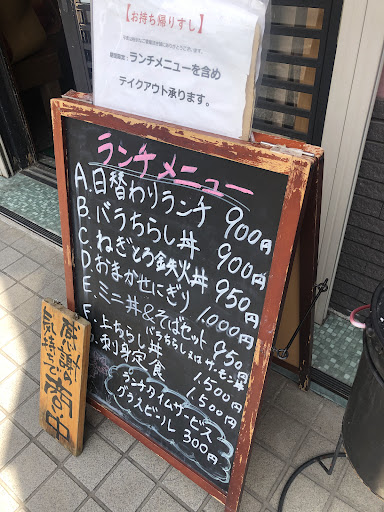 【お持ち帰りすし】
ランチメニューを含め
テイクアウト承ります。
ランチメニュー
A.日替わりランチ 900円
B.バラちらし丼 900円
C.ねぎとろ鉄火丼 950円
D.おまかせにぎり 1,000円
E.ミニ丼&そばセット 950円
バラちらし又はサーモン丼
F.上ちらし丼 1,500円
G.刺身定食 1,500円
ランチタイムサービス
グラスビール 300円
感謝の
気持ちで
商中